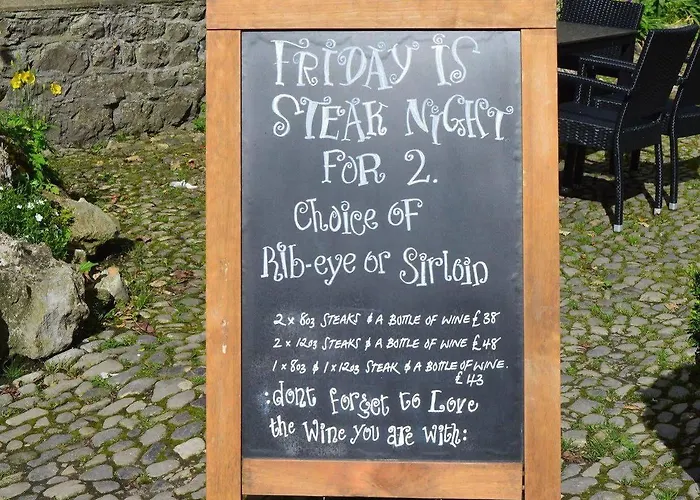 FRIDAY iS
STEAK NiGHT
FOR 2.
Choice OF
Rib-eye or Sirloin
2 x 8oz STEAKS & A BOTTLE OF WINE £38
2 x 12oz STEAKS & A BOTTLE OF WINE £48
1 x 8oz & 1 x 12oz STEAK & A BOTTLE OF WINE.
£43
:dont forget to Love
the wine you are with: